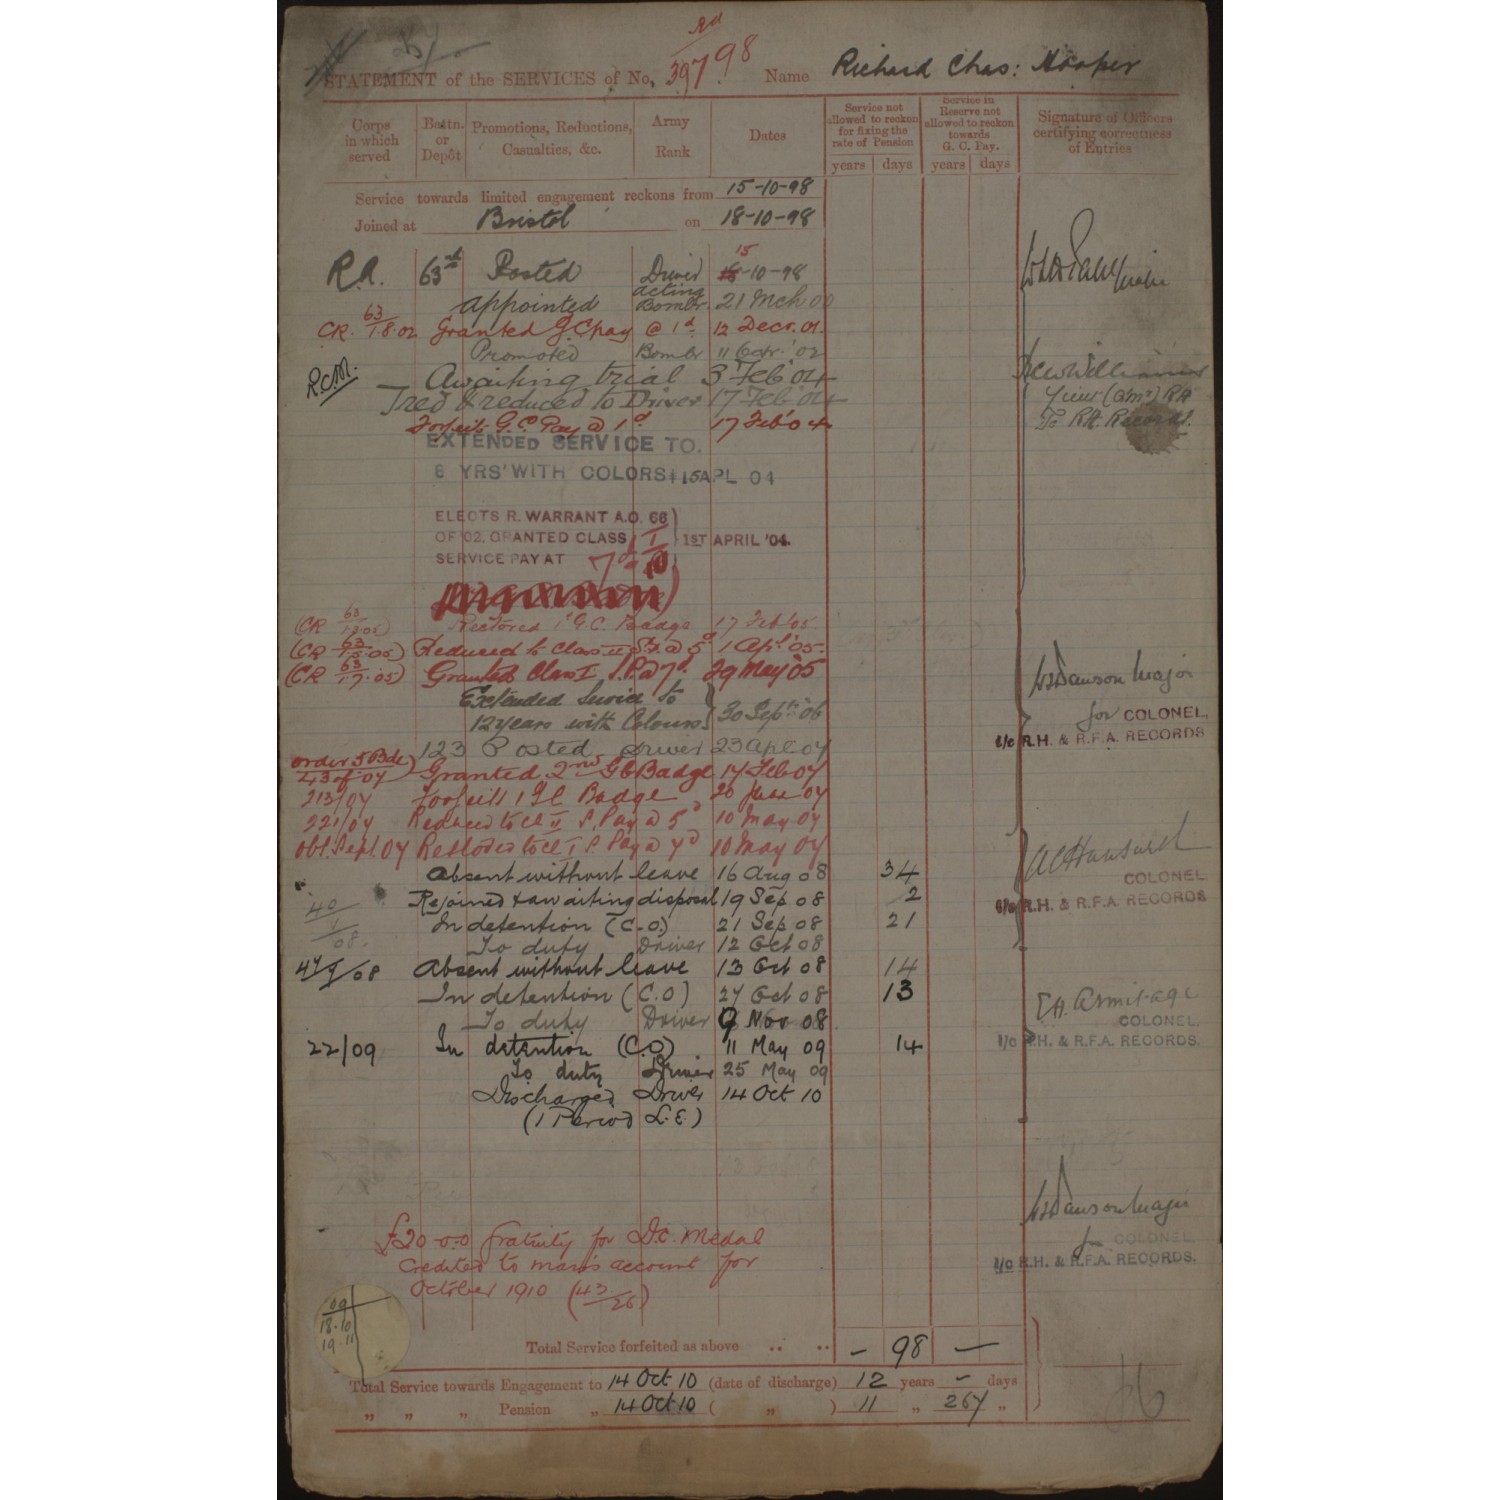 Rd
STATEMENT of the SERVICES of No. 39798 Name Richard Chas: Hooper
Corps in which served
Battn. or Depôt
Promotions, Reductions, Casualties, &c.
Army Rank
Dates
Service not allowed to reckon for fixing the rate of Pension
years days
Service in Reserve not allowed to reckon towards G. C. Pay.
years days
Signature of Officers certifying correctness of Entries
Service towards limited engagement reckons from 15-10-98
Joined at Bristol on 18-10-98
15
R.A. 63rd Posted Driver 18-10-98
appointed acting Bombr 21 Mch 00
CR. 63/1.8.02 Granted G.C. pay @ 1d 12 Decr. 01.
Promoted Bombr '02
RCM. Awaiting trial 3 Feb '04
Tried & reduced to Driver 17 Feb '04
Forfeits G.C. Pay @ 1d 17 Feb '04
To R.H. Records.
EXTENDED SERVICE TO.
8 YRS' WITH COLORS 15 APL 04
ELECTS R. WARRANT A.O. 66
OF '02. GRANTED CLASS I 1ST APRIL '04.
SERVICE PAY AT 7d
(CR 63) Restored 1 G.C. Badge 17 Feb '05.
(CR 63 05) Reduced to Class II S.P. @ 5d 1 Apl '05.
(CR 63/1.7.05) Granted Class I S.P. @ 7d. 29 May '05
Extended Service to
12 years with Colours 30 Sept. '06
Dawson Major
for COLONEL,
I/C R.H. & R.F.A. RECORDS
123 Posted Driver 23 Apl 07
order 5 Bde 07 Granted 2nd GC Badge 17 Feb 07
213/07 Forfeits 1 GC Badge 20 June 07
221/07 Reduced to Cl II S. Pay @ 5d 10 May 07
Sept. 07 Restored to Cl I S. Pay @ 7d 10 May 07
Absent without leave 16 Aug 08 34
COLONEL
I/C R.H. & R.F.A. RECORDS
40/08. Rejoined & awaiting disposal 19 Sep 08 2
In detention (C.O.) 21 Sep 08 21
To duty Driver 12 Oct 08
08 Absent without leave 13 Oct 08 14
In detention (C.O) 27 Oct 08 13
E.H. Armitage
COLONEL.
I/C R.H. & R.F.A. RECORDS.
To duty Driver 9 Nov 08
22/09 In detention (C.O) 11 May 09 14
To duty Driver 25 May 09
Discharged Driver 14 Oct 10
(1 Period L.E.)
Dawson Major
for COLONEL
I/C R.H. & R.F.A. RECORDS.
£20-0-0 Gratuity for D.C. Medal
credited to man's account for
October 1910 (43/26)
09
18.10
19 11
Total Service forfeited as above .. .. – 98 –
Total Service towards Engagement to 14 Oct 10 (date of discharge) 12 years – days
„ „ „ Pension „ 14 Oct 10 ( „ ) 11 „ 267 „